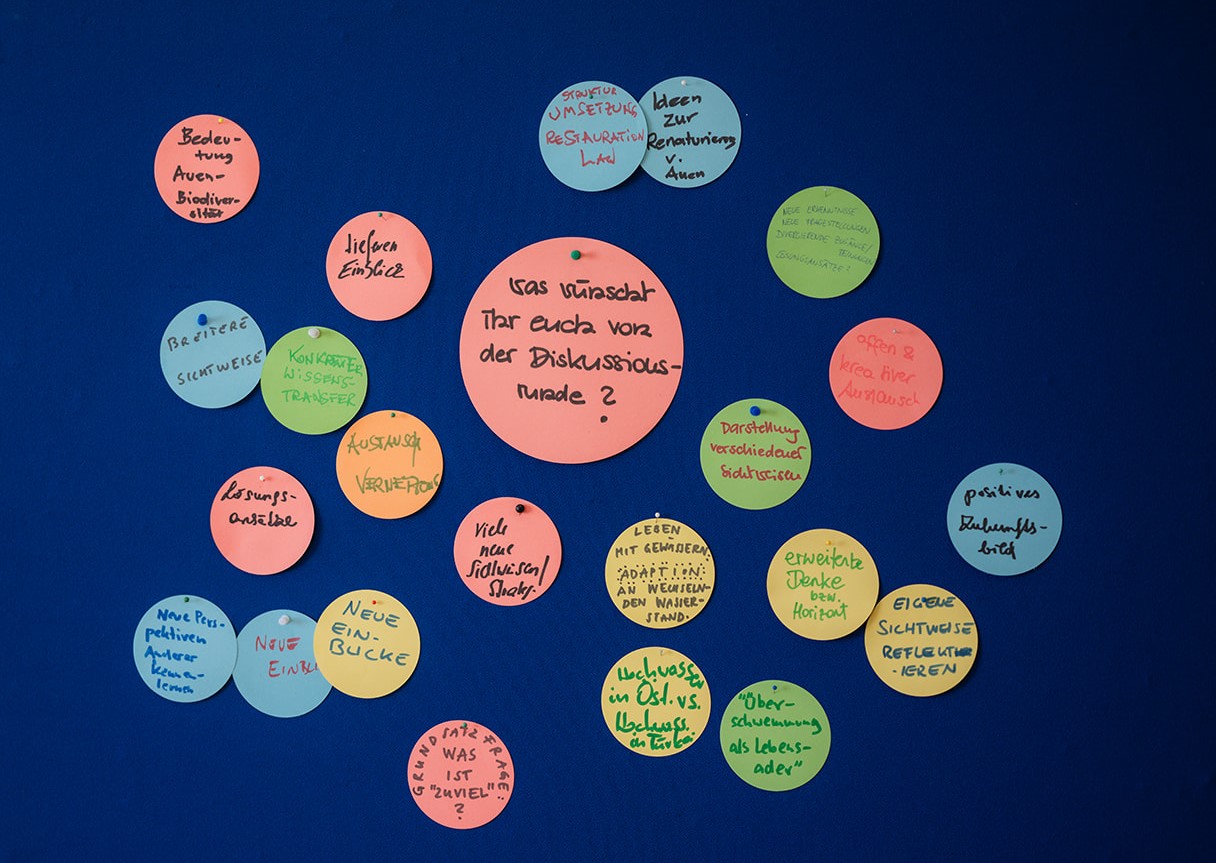 Was wünscht
Ihr euch von
der Diskussions-
runde?
STRUKTUR
UMSETZUNG
RESTAURATION
LAW
Ideen
zur
Renaturierung
v.
Auen
Bedeu-
tung
Auen-
Biodiver-
sität
tieferen
Einblick
NEUE ERKENNTNISSE
NEUE FRAGESTELLUNGEN
DIVERGIERENDE ZUGÄNGE/
LÖSUNGSANSÄTZE?
BREITERE
SICHTWEISE
KONKRETER
WISSENS-
TRANSFER
offen &
kreativer
Austausch
AUSTAUSCH
VERNETZUNG
Darstellung
verschiedener
Sichtweisen
Lösungs-
ansätze
Viele
neue
Sichtweisen/
positives
Zukunfts-
bild
LEBEN
MIT GEWÄSSERN:
ADAPTION
AN WECHSELN-
DEN WASSER-
STAND.
erweiterte
Denke
bzw.
Horizont
EIGENE
SICHTWEISE
REFLEKTIER
-IEREN
Neue Pers-
pektiven
Anderer
kennen-
lernen
NEUE
EINBLI
NEUE
EIN-
BLICKE
Hochwasser
in Öst. vs.
Hochwass.
in Türkei
"Über-
schwemmung
als Lebens-
ader"
GRUNDSATZFRAGE:
WAS
IST
"ZUVIEL"
?